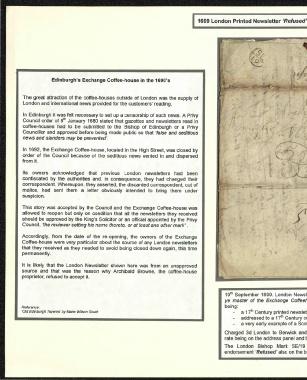 1699 London Printed Newsletter 'Refused'
Edinburgh's Exchange Coffee-house in the 1690's
The great attraction of the coffee-houses outside of London was the supply of
London and international news provided for the customers' reading.
In Edinburgh it was felt necessary to set up a censorship of such news. A Privy
Council order of 8th January 1680 stated that gazettes and newsletters read in
coffee-houses had to be submitted to the Bishop of Edinburgh or a Privy
Councillor and approved before being made public so that 'false and seditious
news and slanders may be prevented'.
In 1692, the Exchange Coffee-house, located in the High Street, was closed by
order of the Council because of the seditious news vented in and dispersed
from it.
Its owners acknowledged that previous London newsletters had been
confiscated by the authorities and, in consequence, they had changed their
correspondent. Whereupon, they asserted, the discarded correspondent, out of
malice, had sent them a letter obviously intended to bring them under
suspicion.
This story was accepted by the Council and the Exchange Coffee-house was
allowed to reopen but only on condition that all the newsletters they received
should be approved by the King's Solicitor or an official appointed by the Privy
Council, 'the reviewer setting his name thereto, or at least ane other mark'.
Accordingly, from the date of the re-opening, the owners of the Exchange
Coffee-house were very particular about the source of any London newsletters
that they received as they needed to avoid being closed down again, this time
permanently.
It is likely that the London Newsletter shown here was from an unapproved
source and that was the reason why Archibald Browne, the coffee-house
proprietor, refused to accept it.
Reference:
'Old Edinburgh Taverns' by Marie Wilson Stuart
19th September 1699. London Newsl
ye master of the Exchange Coffee
being:
- a 17th Century printed newslet
- addressed to a 17th Century c
- a very early example of a Sco
Charged 3d London to Berwick and
rate being on the address panel and t
The London Bishop Mark SE/19
endorsement 'Refused' also on the b